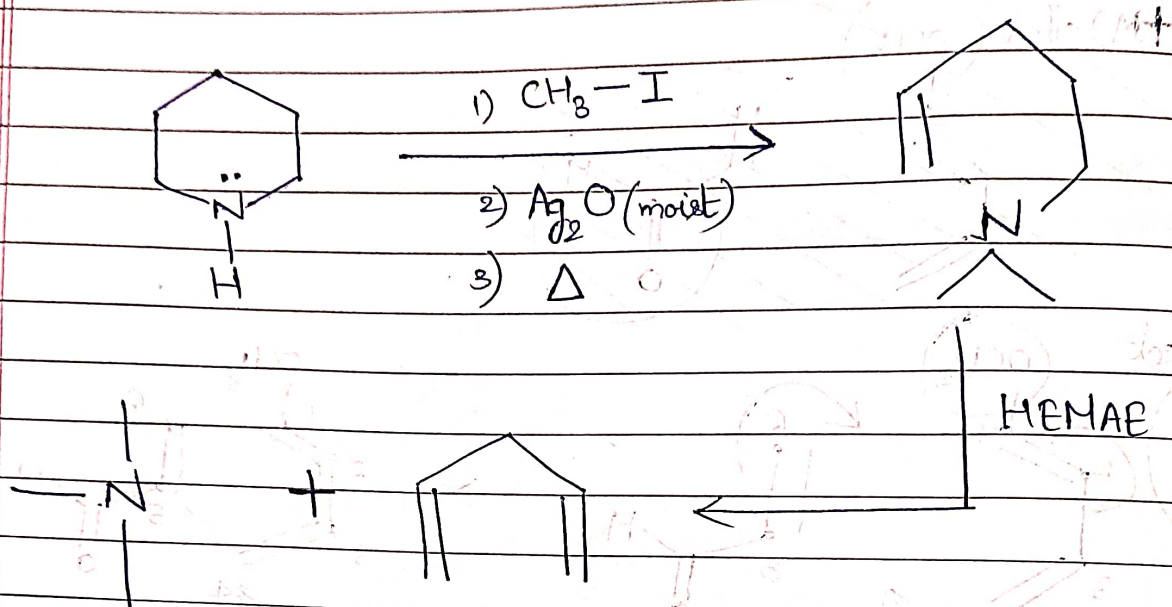 1) CH₃—I
2) Ag₂O (moist)
3) Δ
N
H
N
HEMAE
N
+